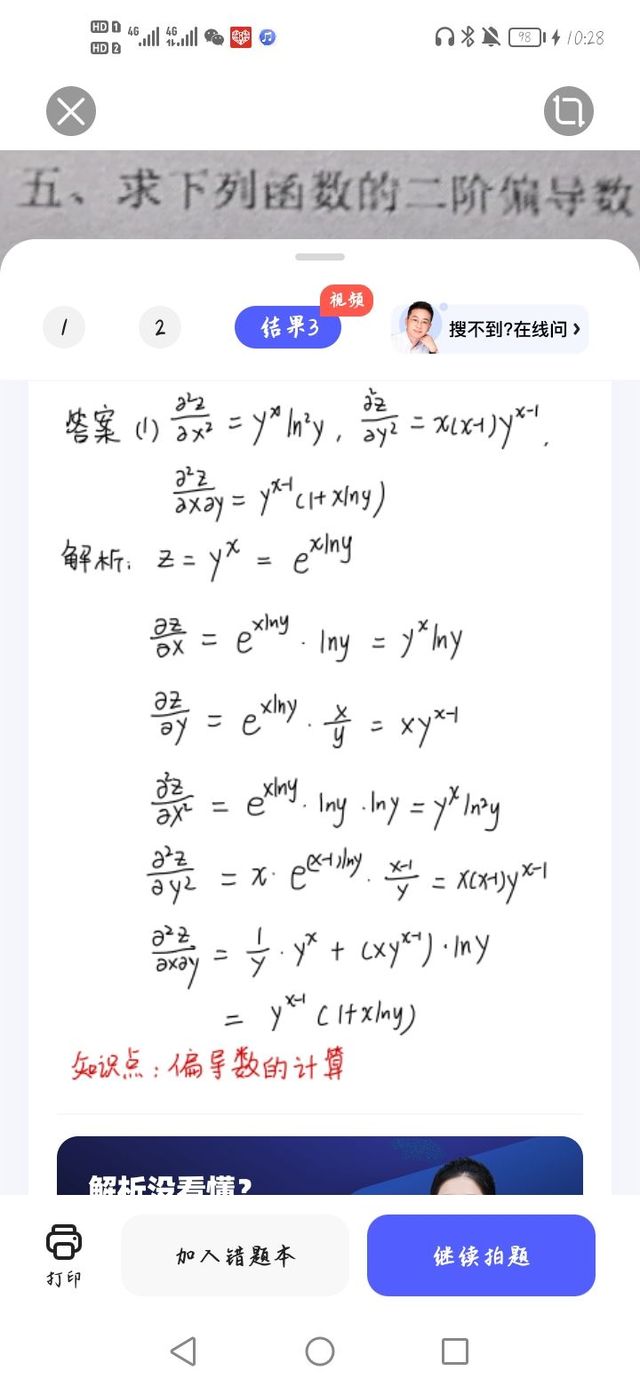 HD 1 4G 4G 98 10:28
HD 2
五、求下列函数的二阶偏导数
视频
1 2 结果3 搜不到?在线问 ›
答案 (1) ∂²z/∂x² = y^x ln²y, ∂²z/∂y² = x(x-1)y^(x-1),
∂²z/∂x∂y = y^(x-1) (1+xlny)
解析: z = y^x = e^(xlny)
∂z/∂x = e^(xlny) · lny = y^x lny
∂z/∂y = e^(xlny) · x/y = xy^(x-1)
∂²z/∂x² = e^(xlny) · lny · lny = y^x ln²y
∂²z/∂y² = x · e^((x-1)lny) · (x-1)/y = x(x-1)y^(x-1)
∂²z/∂x∂y = 1/y · y^x + (xy^(x-1)) · lny
= y^(x-1) (1+xlny)
知识点:偏导数的计算
解析没看懂?
打印 加入错题本 继续拍题